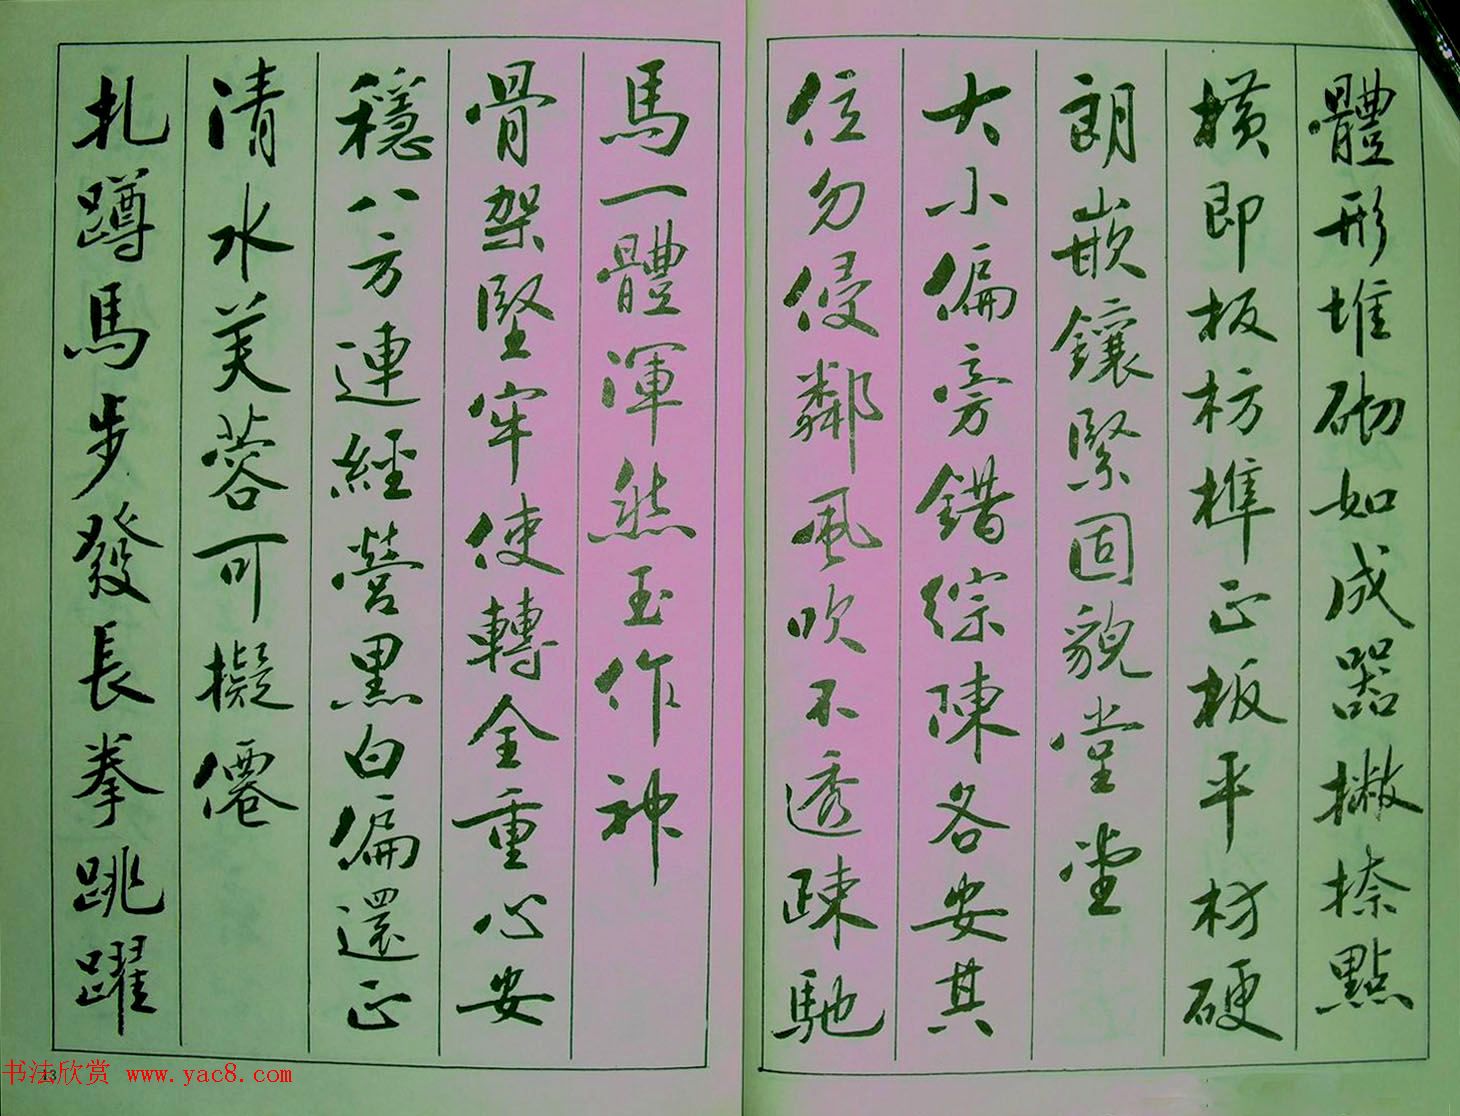 體形堆砌如成器撇捺點
橫即板枋榫正板平枋硬
朗嵌鑲緊固貌堂堂
大小偏旁錯綜陳各安其
位勿侵鄰風吹不透疎馳
馬一體渾然玉作神
骨架堅牢使轉全重心安
穩八方連經營黑白偏還正
清水芙蓉可擬僊
扎蹲馬步發長拳跳躍
13
书法欣赏 www.yac8.com